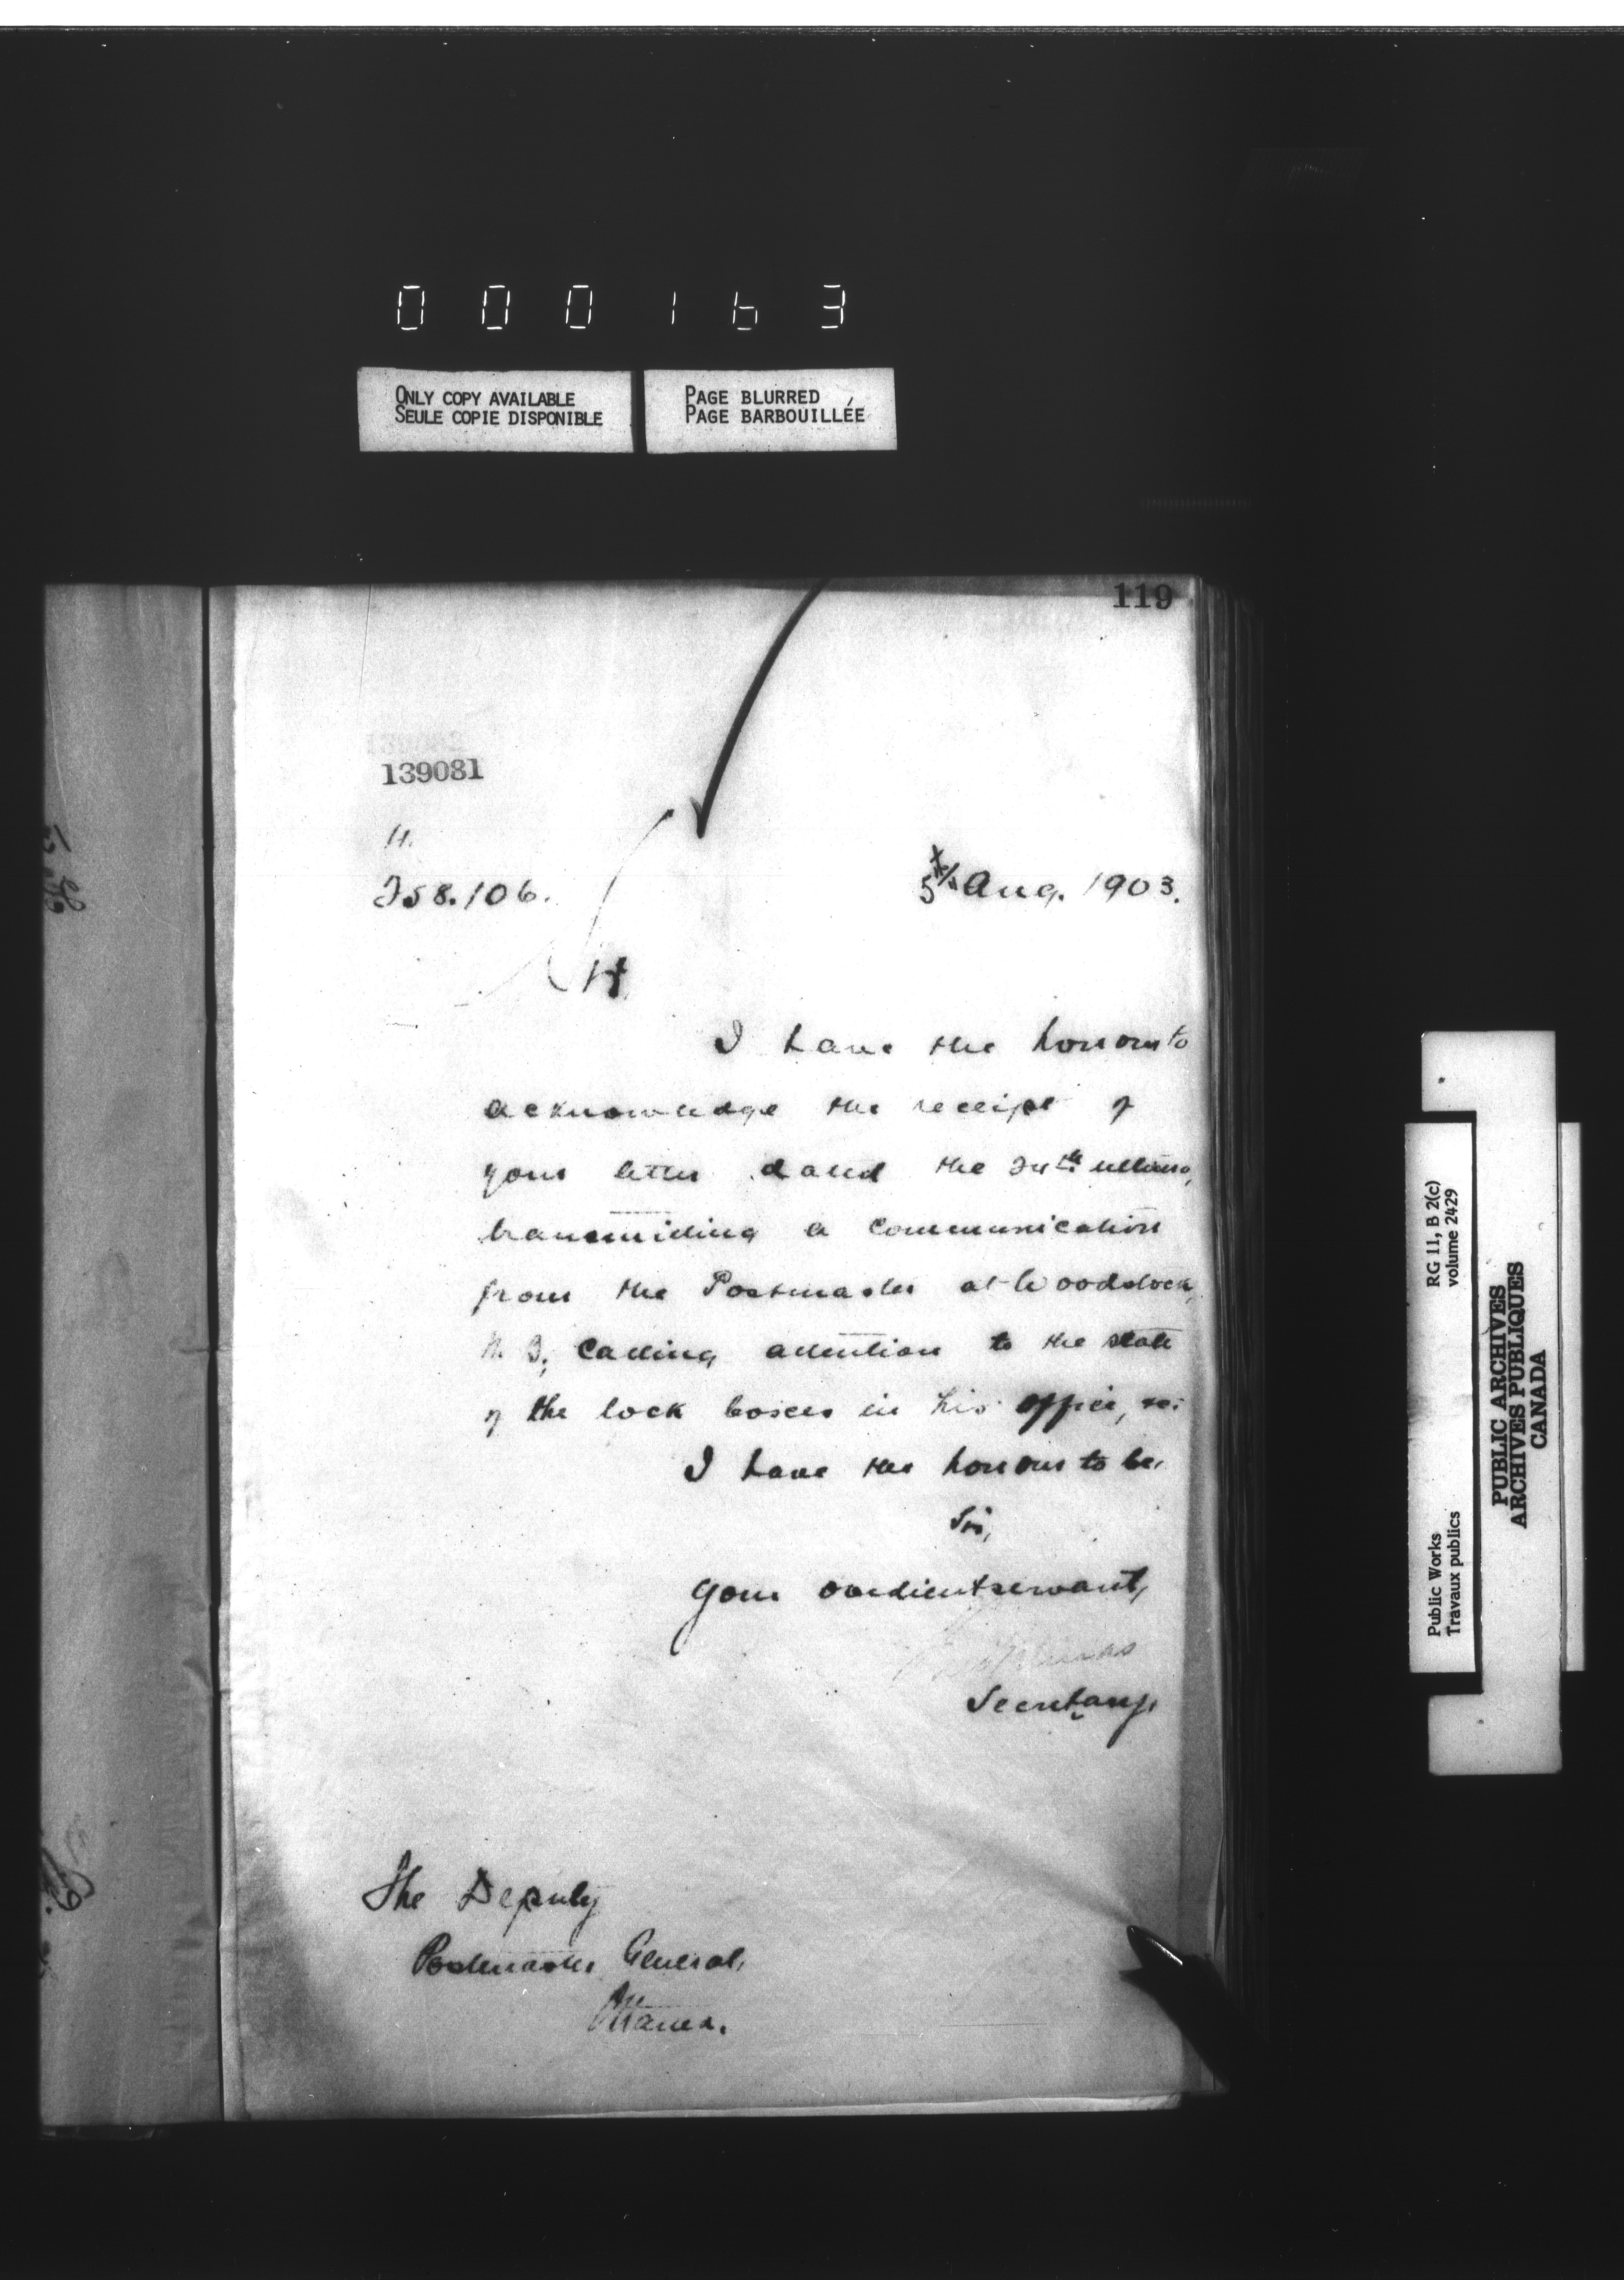 000163
ONLY COPY AVAILABLE
SEULE COPIE DISPONIBLE
PAGE BLURRED
PAGE BARBOUILLÉE
119
139081
H.
258.106.
5th Aug. 1903.
H
I have the honour to
acknowledge the receipt of
your letter dated the 24th ultimo,
transmitting a communication
from the Postmaster at Woodstock,
N. B., calling attention to the state
of the lock boxes in his office, &c.
I have the honour to be,
Sir,
Your obedient servant,
Secretary.
The Deputy
Postmaster General,
Ottawa.
Public Works
Travaux publics
RG 11, B 2(c)
volume 2429
PUBLIC ARCHIVES
ARCHIVES PUBLIQUES
CANADA